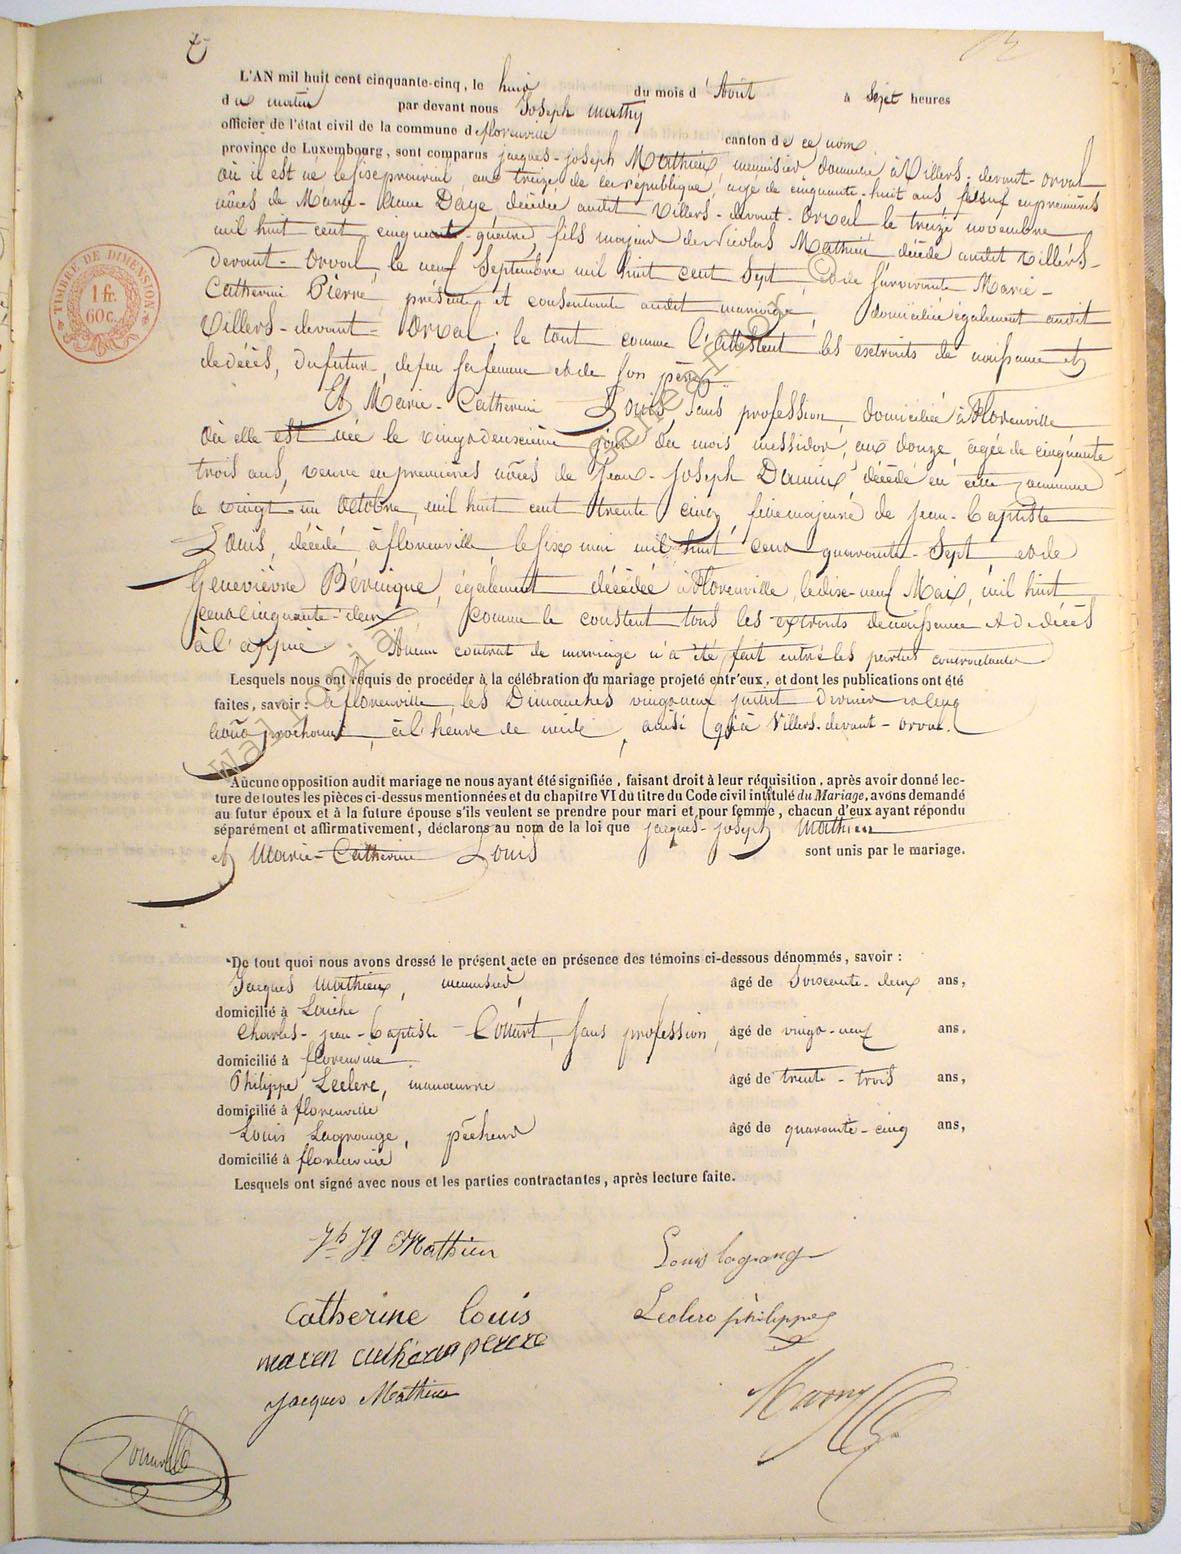 L'AN mil huit cent cinquante-cinq, le huit du mois d'Août à sept heures
du matin par devant nous Joseph Mathy
officier de l'état civil de la commune de florenville canton de ce nom
province de Luxembourg, sont comparus jacques-joseph Mathieu menuisier domicilié à Villers-devant-orval
où il est né le six prairial an treize de la république, agé de cinquante-huit ans, veuf en premières
nôces de Marie-Anne Daye, décédée audit Villers-devant-Orval le treize novembre
mil huit cent cinquante-quatre, fils majeur de Nicolas Mathieu décédé audit Villers-
devant-Orval, le neuf Septembre mil huit cent sept, et de survivante Marie-
Catherine Pierre présente et consentante audit mariage, domiciliée également audit
Villers-devant-Orval; le tout comme l'attestent les extraits de naissance et
de décès, du futur, de feu sa femme et de son père;
Et Marie-Catherine Louis, sans profession, domiciliée à Florenville
où elle est née le vingtdeuxième jour du mois messidor, an douze, âgée de cinquante
trois ans, veuve en premières nôces de Jean-Joseph Dumin décédé en cette commune
le vingt-un Octobre, mil huit cent trente cinq, fille majeure de Jean-Baptiste
Louis, décédé à florenville le six mai mil huit cent quarante-sept et de
Geneviève Bévinque, également décédée à Florenville, le dix-neuf Mai, mil huit
cent cinquante-deux, comme le constent tous les extraits de naissance et de décès
à l'appui. Aucun contrat de mariage n'a été fait entre les parties contractantes
Lesquels nous ont requis de procéder à la célébration du mariage projeté entr'eux, et dont les publications ont été
faites, savoir: à florenville, les Dimanches vingt-neuf juillet dernier et cinq
août prochain, à l'heure de midi, ainsi qu'à Villers-devant-orval.
Aucune opposition audit mariage ne nous ayant été signifiée, faisant droit à leur réquisition, après avoir donné lec-
ture de toutes les pièces ci-dessus mentionnées et du chapitre VI du titre du Code civil intitulé du Mariage, avons demandé
au futur époux et à la future épouse s'ils veulent se prendre pour mari et pour femme, chacun d'eux ayant répondu
séparément et affirmativement, déclarons au nom de la loi que jacques-joseph Mathieu
et Marie-Catherine Louis sont unis par le mariage.
De tout quoi nous avons dressé le présent acte en présence des témoins ci-dessous dénommés, savoir:
Jacques Mathieu, menuisier âgé de soixante-deux ans,
domicilié à Laiche
Charles-jean-baptiste Collart, sans profession, âgé de vingt-neuf ans,
domicilié à florenville
Philippe Leclerc, manœuvre âgé de trente-trois ans,
domicilié à florenville
Louis Lagrange, pêcheur âgé de quarante-cinq ans,
domicilié à florenville
Lesquels ont signé avec nous et les parties contractantes, après lecture faite.
Mathieu
Louis lagrang
Catherine Louis
Leclerc philippe
Jacques Mathieu
TIMBRE DE DIMENSION
1 fr.
60 c.